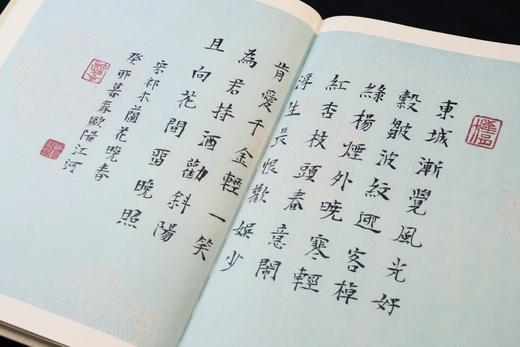 東城漸覺風光好
縠皺波紋迎客棹
綠楊煙外曉寒輕
紅杏枝頭春意鬧
浮生長恨歡娛少
肯愛千金輕一笑
為君持酒勸斜陽
且向花間畱晚照
宋祁木蘭花晚春
癸卯暮春歐陽江河